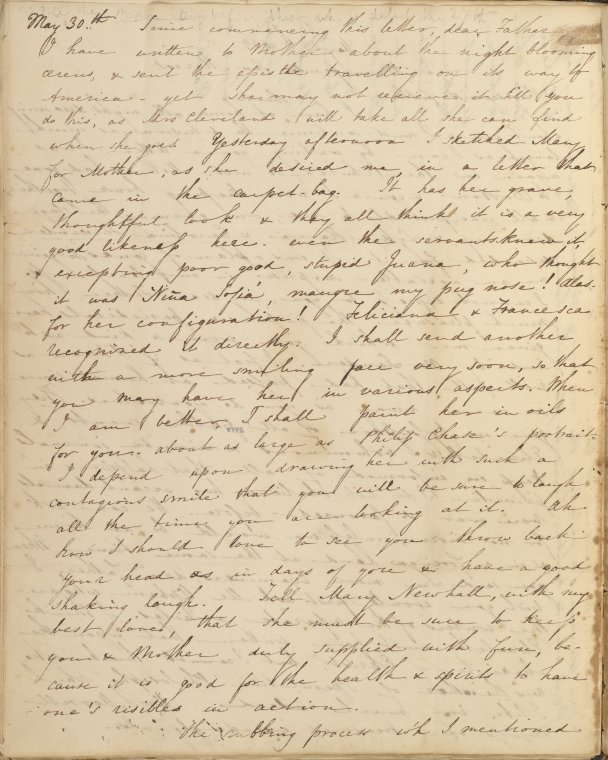 May 30.th Since commencing this letter, dear Father
I have written to Mother about the night blooming
cereus, & sent the epistle travelling on its way to
America - yet she may not receive it till you
do this, as Mrs Cleveland will take all she can find
when she goes. Yesterday afternoon I sketched Mary
for Mother, as she desired me in a letter that
came in the carpet-bag. It has her grave,
thoughtful look & they all think it is a very
good likeness here. even the servants knew it,
excepting poor good stupid Juana, who thought
it was Niña Sofia, maugre my pug nose! Alas-
for her configuration! Feliciana & Francesca
recognized it directly. I shall send another
with a more smiling face very soon, so that
you may have her in various aspects. When
I am better, I shall paint her in oils
for you. about as large as Philip Chase's portrait-
NYPL
I depend upon drawing her with such a
contagious smile that you will be sure to laugh
all the time you are looking at it. Ah
how I should love to see you throw back
your head as in days of yore & have a good
shaking laugh. Tell Mary Newhall, with my
best love, that she must be sure to keep
you & Mother duly supplied with fun, be-
cause it is good for the health & spirits to have
one's risibles in action.
The rubbing process wh I mentioned